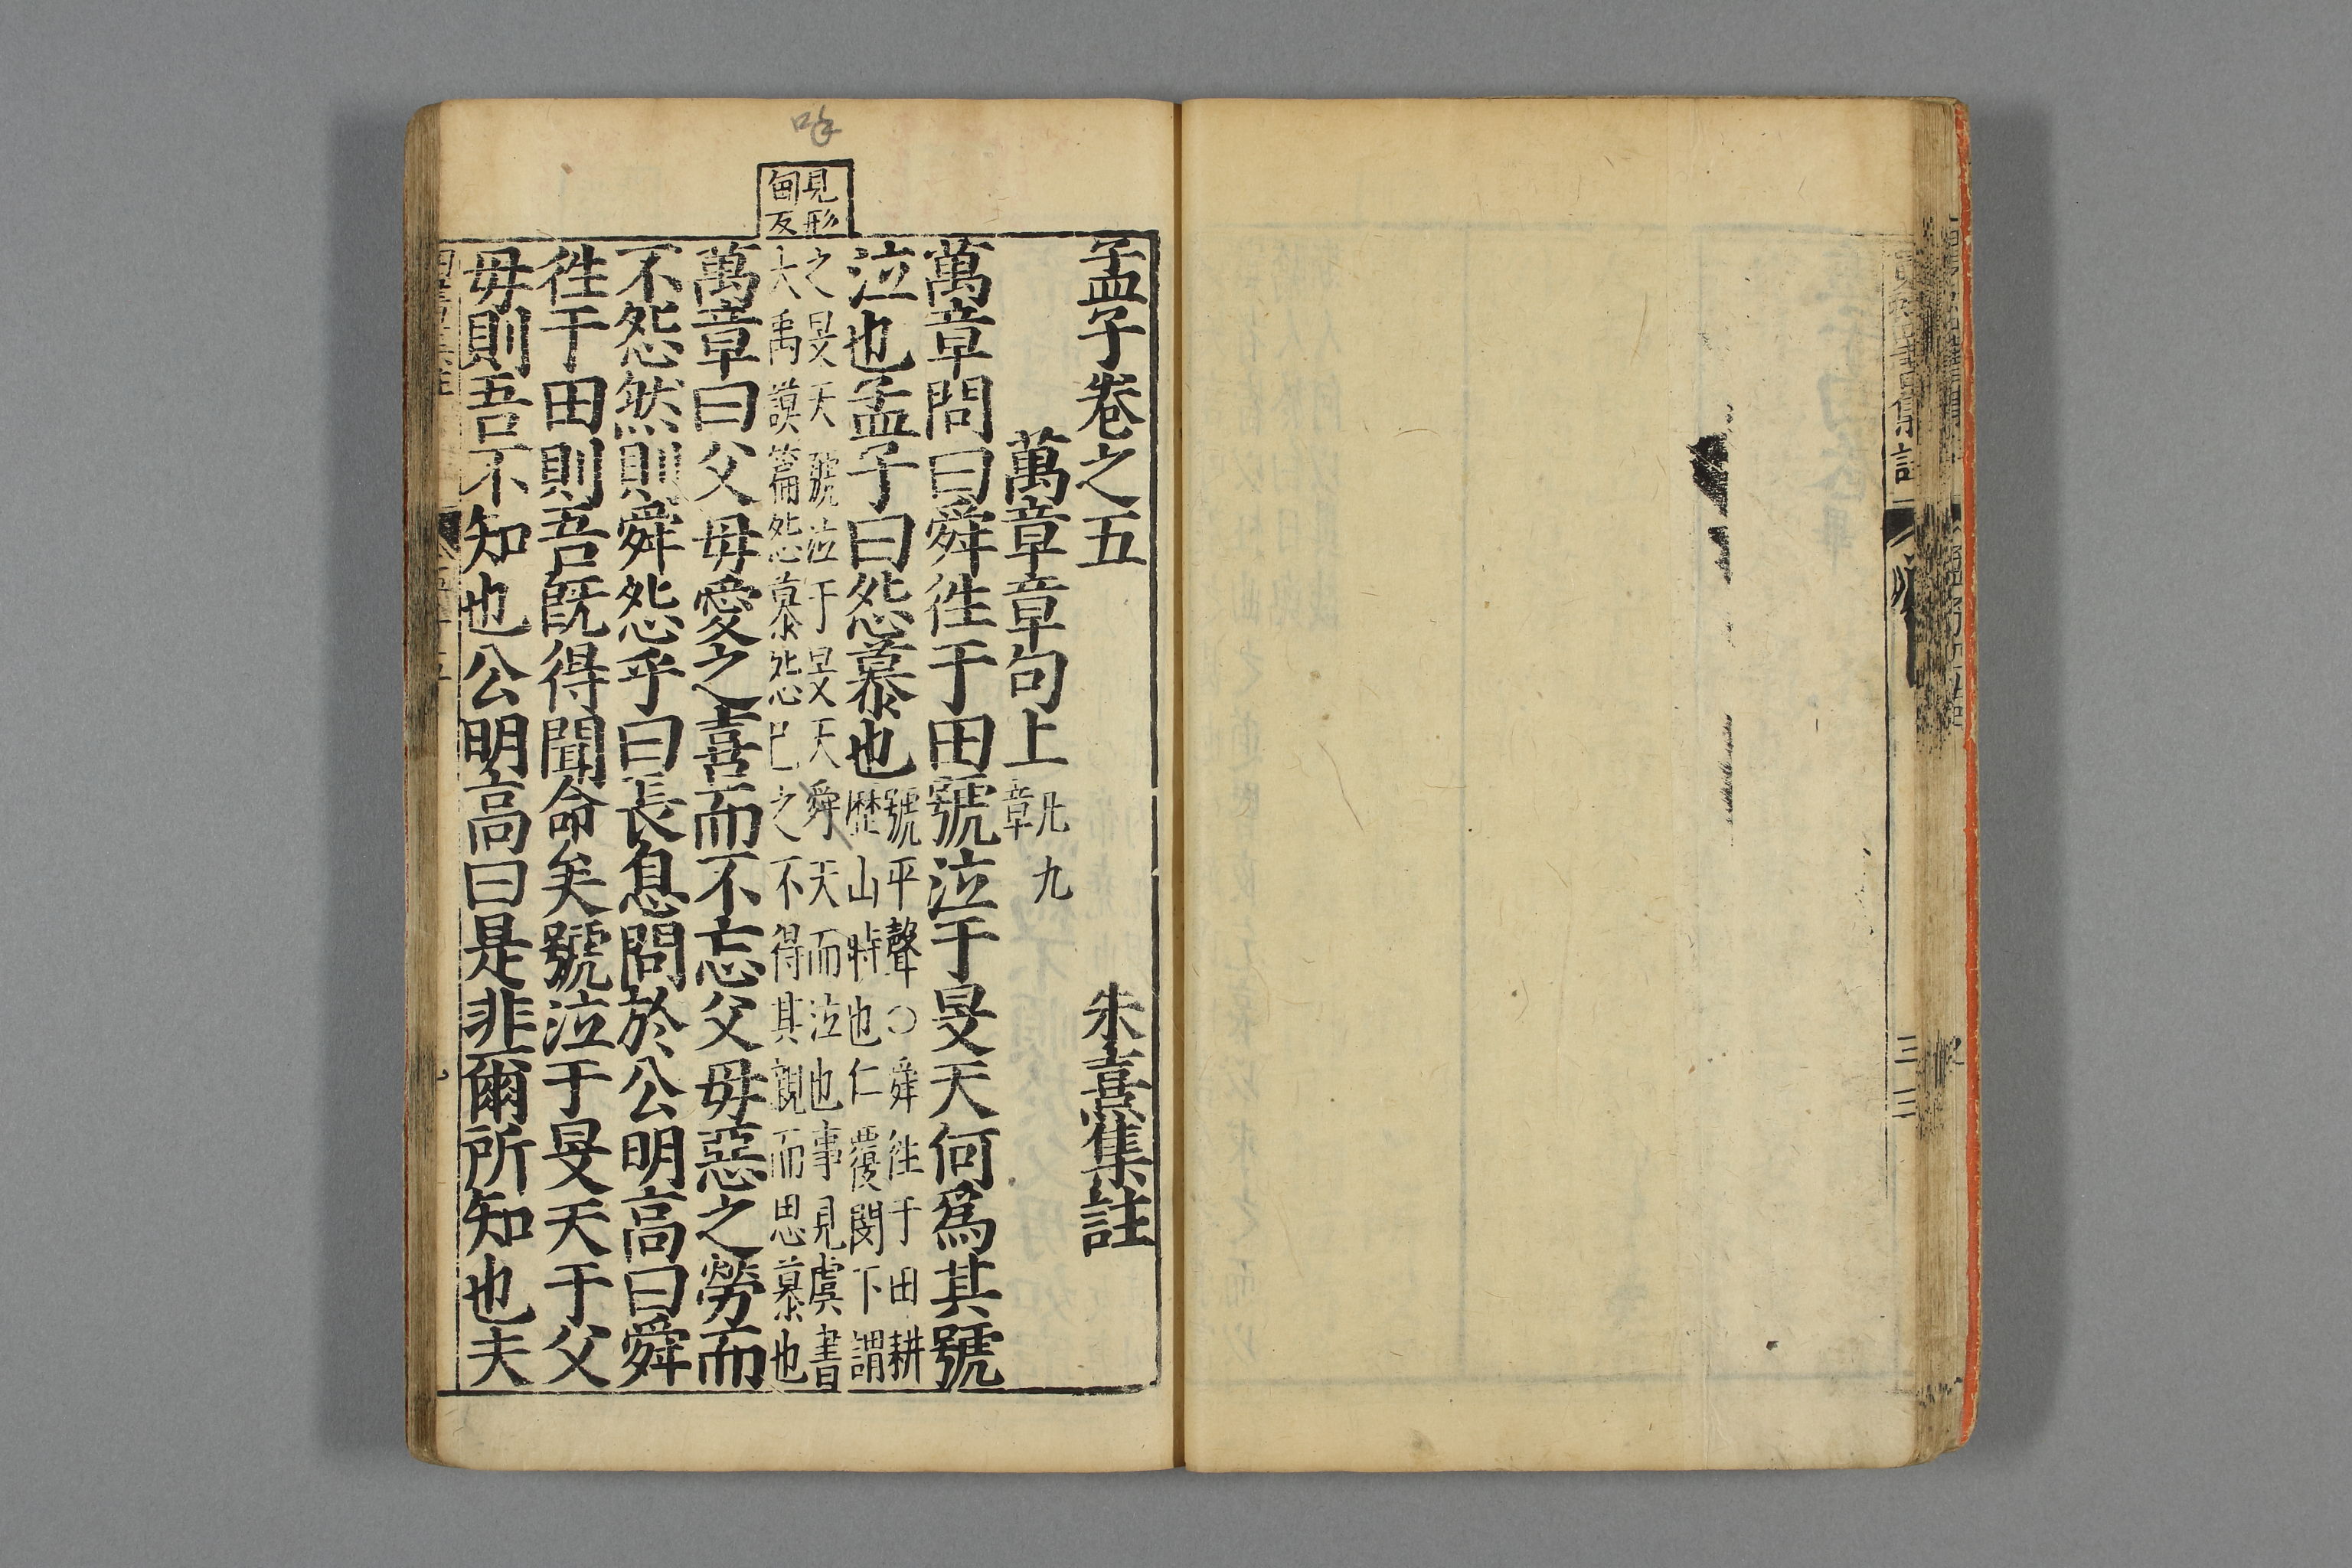 孟子卷之五　朱熹集註
萬章章句上
凡九
章
萬章問曰舜徃于田號泣于旻天何爲其號
泣也孟子曰怨慕也
號平聲○舜徃于田耕
歴山時也仁覆閔下謂
見形
甸反
之旻天號泣于旻天舜天而泣也事見虞書
大禹謨篇怨慕怨己之不得其親而思慕也
萬章曰父毋愛之喜而不忘父毋惡之勞而
不怨然則舜怨乎曰長息問於公明高曰舜
徃于田則吾旣得聞命矣號泣于旻天于父
毋則吾不知也公明高曰是非爾所知也夫